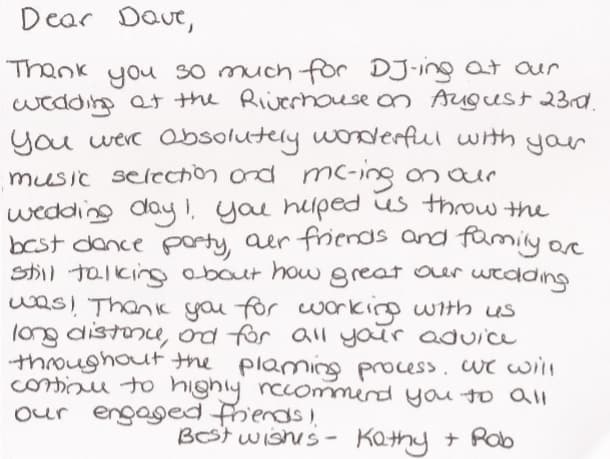 Dear Dave,
Thank you so much for DJ-ing at our
wedding at the Riverhouse on August 23rd.
You were absolutely wonderful with your
music selection and mc-ing on our
wedding day! You helped us throw the
best dance party, our friends and family are
still talking about how great our wedding
was! Thank you for working with us
long distance, and for all your advice
throughout the planning process. We will
continue to highly recommend you to all
our engaged friends!
Best wishes - Kathy + Rob